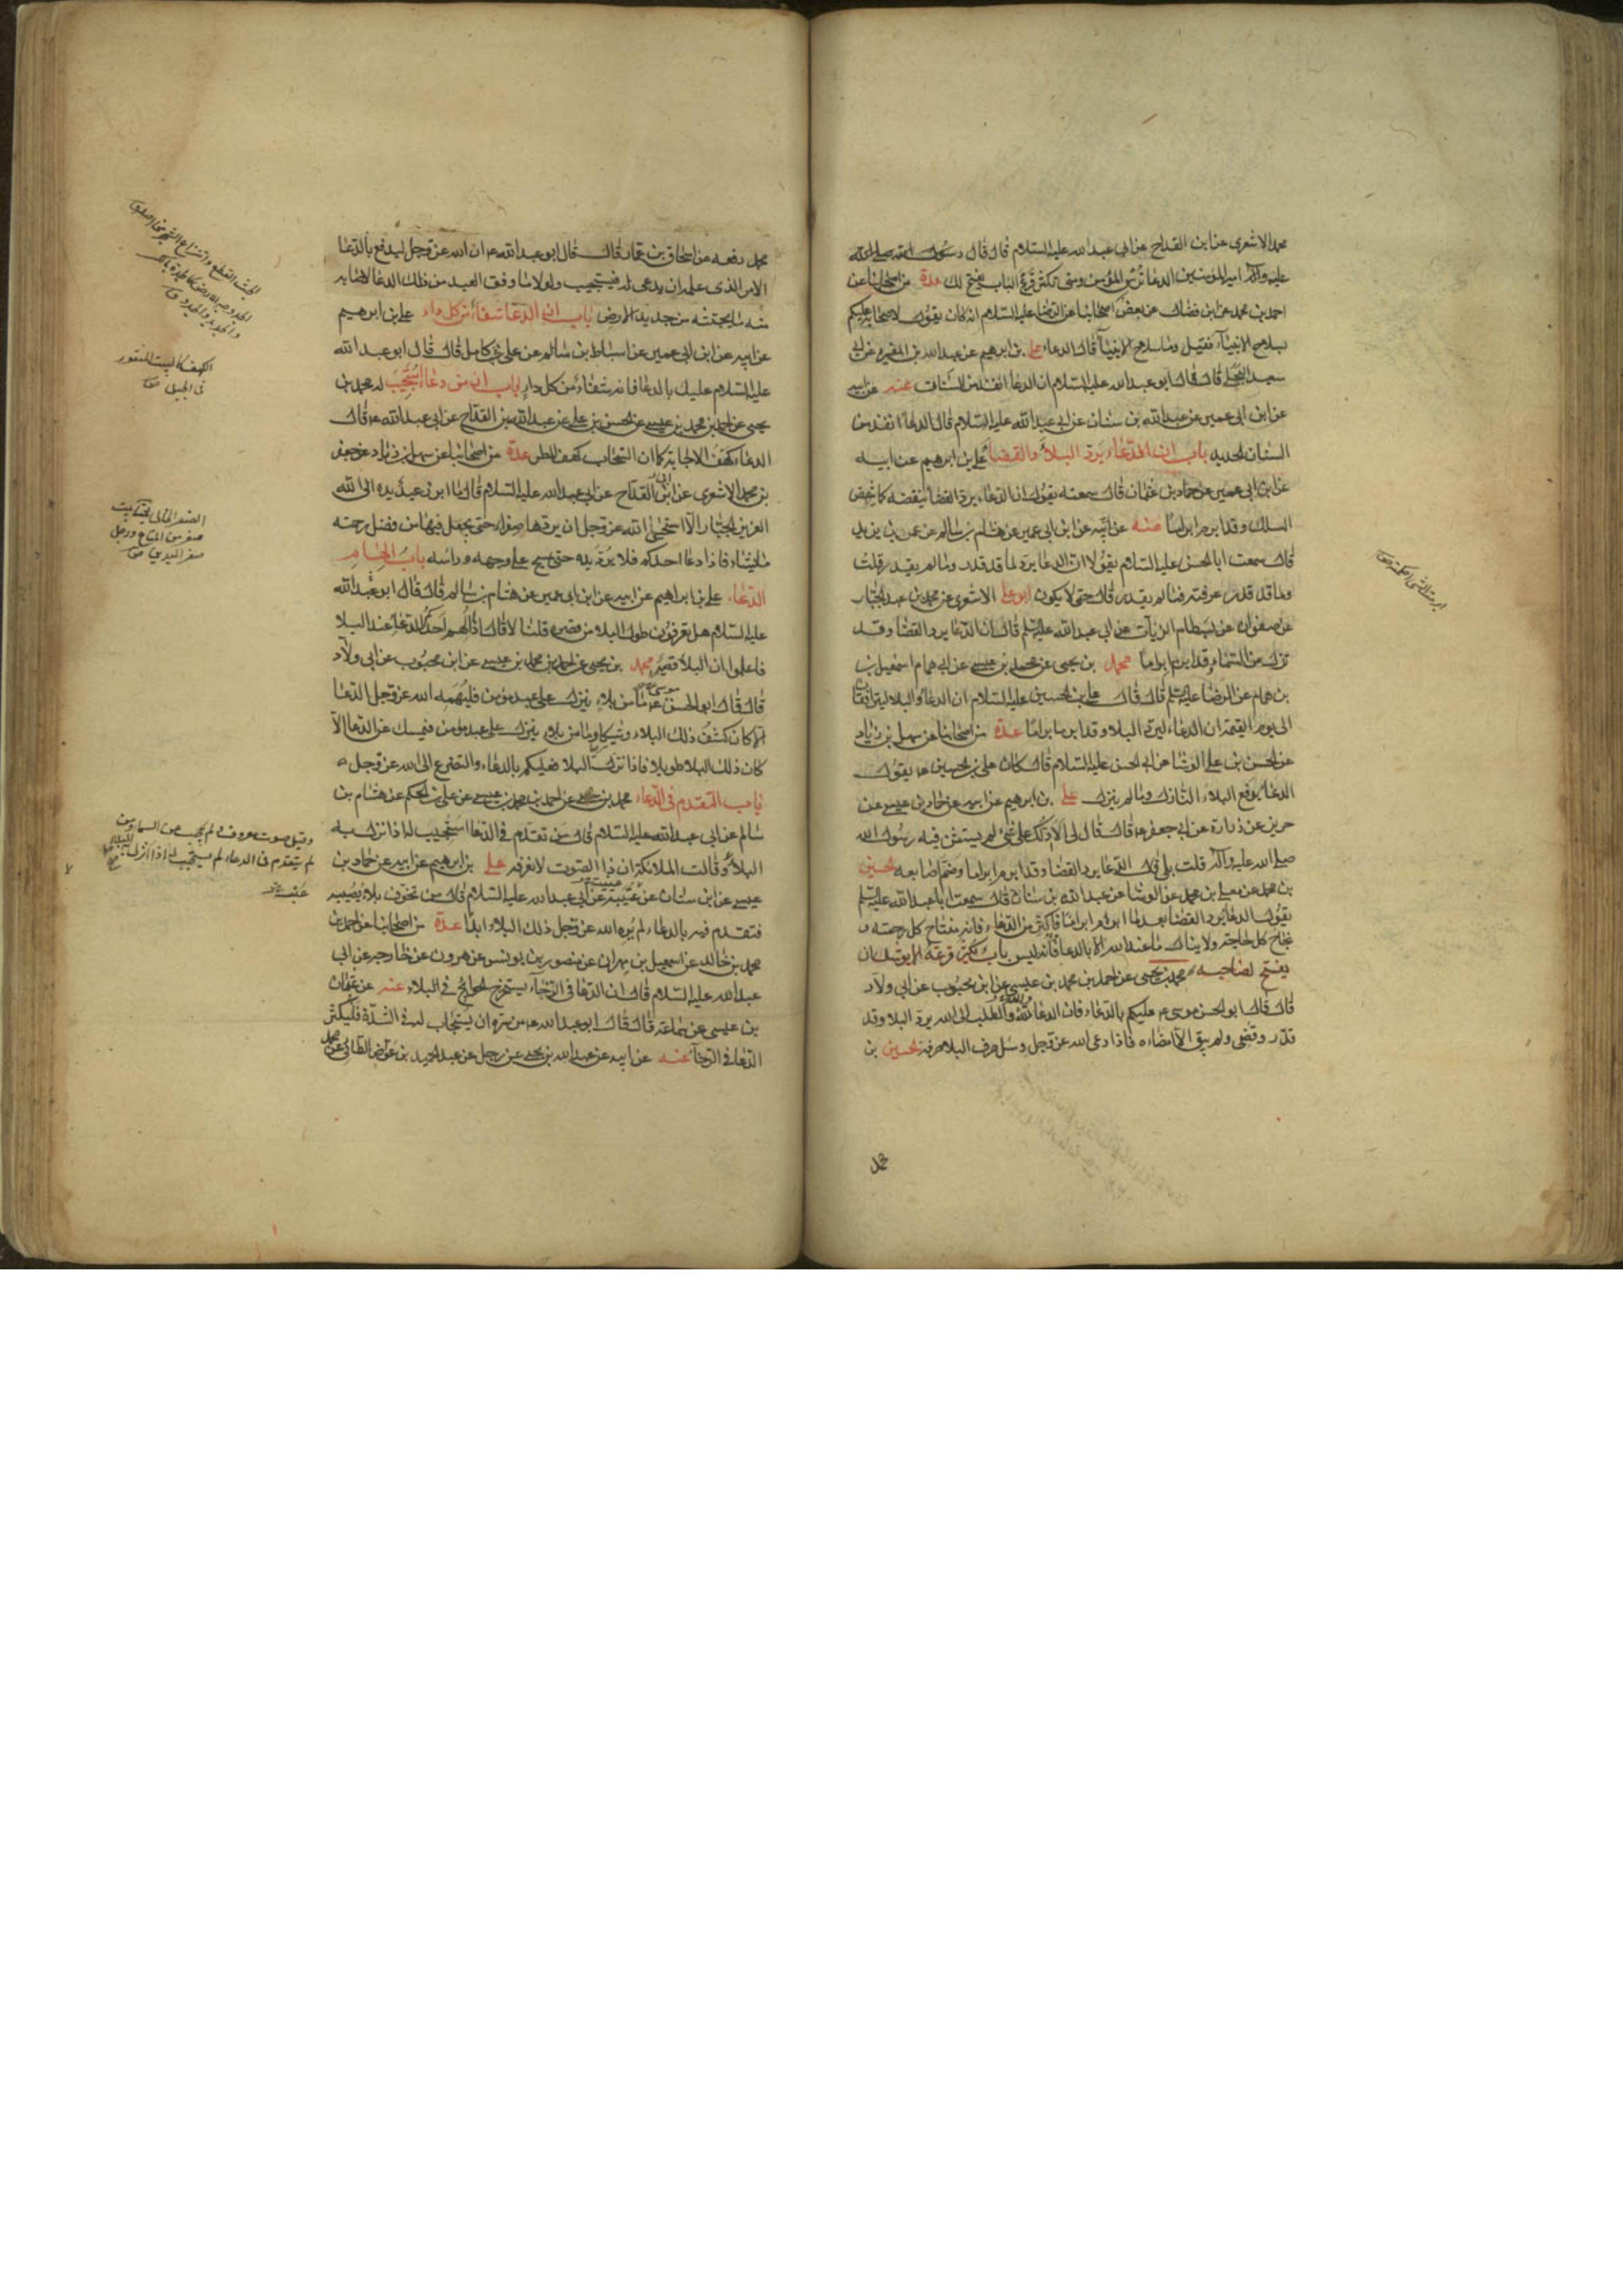 محمد الاشعرى عن ابن القداح عن ابى عبد الله عليه السلام قال قال رسول الله صلى الله
عليه وآله امير المؤمنين الدعا ترس المؤمن ومتى تكثر قرع الباب يفتح لك عدة من اصحابنا عن
احمد بن محمد عن ابن فضال عن بعض اصحابنا عن الرضا عليه السلام انه كان يقول لاصحابه عليكم
بسلاح الانبياء فقيل وما سلاح الانبياء قال الدعاء على بن ابرهيم عن عبد الله بن المغيره عن ابى
سعيد البجلى قال قال ابو عبد الله عليه السلام ان الدعا انفذ من السنان عنه عن ابيه
عن ابن ابى عمير عن عبد الله بن سنان عن ابى عبد الله عليه السلام قال الدعا انفذ من
السنان الحديد باب ان الدعاء يرد البلاء والقضا على بن ابرهيم عن ابيه
عن ابن ابى عمير عن حماد بن عثمان قال سمعته يقول ان الدعاء يرد القضا ينقضه كما ينقض
السلك وقد ابرم ابراما عنه عن ابيه عن ابن ابى عمير عن هشام بن سالم عن عمر بن يزيد
قال سمعت ابا الحسن عليه السلام يقول ان الدعا يرد ما قد قدر وما لم يقدر قلت
وما قد قدر عرفته فما لم يقدر قال حتى لا يكون ابو على الاشعرى عن محمد بن عبد الجبار
عن صفوان عن بسطام الزيات عن ابى عبد الله عليه السلم قال ان الدعا يرد القضا وقد
نزل من السماء وقد ابرم ابراما محمد بن يحيى عن محمد بن عيسى عن ابى همام اسمعيل بن
بن همام عن الرضا عليه السلم قال قال على بن الحسين عليه السلام ان الدعا والبلا ليترافقان
الى يوم القيمة ان الدعاء ليرد البلاء وقد ابرم ابراما عدة من اصحابنا عن سهل بن زياد
عن الحسن بن على الوشا عن ابى الحسن عليه السلام قال كان على بن الحسين ع يقول
الدعا يدفع البلاء النازل وما لم ينزل على بن ابرهيم عن ابيه عن حماد بن عيسى عن
حريز عن زرارة عن ابى جعفر ع قال قال لى الا ادلك على شئ لم يستثن فيه رسول الله
صلى الله عليه وآله قلت بلى قال الدعا يرد القضا وقد ابرم ابراما وضم اصابعه الحسين
بن محمد عن معلى بن محمد عن الوشا عن عبد الله بن سنان قال سمعت ابا عبد الله عليه السلم
يقول الدعا يرد القضا بعد ما ابرم ابراما فاكثر من الدعاء فانه مفتاح كل رحمة و
نجاح كل حاجة ولا ينال ما عند الله الا بالدعا فانه ليس باب يكثر قرعه الا يوشك ان
يفتح لصاحبه محمد بن يحيى عن احمد بن محمد بن عيسى عن ابن محبوب عن ابى ولاد
قال قال ابو الحسن موسى ع عليكم بالدعاء فان الدعا لله والطلب الى الله يرد البلا وقد
قدر وقضى ولم يبق الا امضاءه فاذا دعى الله عز وجل وسئل صرف البلا صرفه الحسين بن
محمد
محمد رفعه عن اسحاق بن عمار قال قال ابو عبد الله ع ان الله عز وجل ليدفع بالدعا
الامر الذى علم ان يدعى له فيستجيب ولولا ما وفق العبد من ذلك الدعا لاصابه
منه ما يجتثه من جديد الارض باب ان الدعا شفاء من كل داء على بن ابرهيم
عن ابيه عن ابن ابى عمير عن اسباط بن سالم عن علاء بن كامل قال قال ابو عبد الله
عليه السلام عليك بالدعا فانه شفاء من كل داء باب ان من دعا استجيب له محمد بن
يحيى عن احمد بن محمد بن عيسى عن الحسن بن على عن عبد الله بن القداح عن ابى عبد الله ع قال
الدعاء كهف الاجابة كما ان السحاب كهف المطر عدة من اصحابنا عن سهل بن زياد عن جعفر
بن محمد الاشعرى عن ابن القداح عن ابى عبد الله عليه السلام قال ما ابرز عبد يده الى الله
العزيز الجبار الا استحيى الله عز وجل ان يردها صفرا حتى يجعل فيها من فضل رحمته
ما يشاء فاذا دعا احدكم فلا يرد يده حتى يمسح على وجهه وراسه باب الهام
الدعاء على بن ابراهيم عن ابيه عن ابن ابى عمير عن هشام بن سالم قال قال ابو عبد الله
عليه السلام هل تعرفون طول البلا من قصره قلنا لا قال اذا الهم احدكم الدعا عند البلا
فاعلموا ان البلاء قصير محمد بن يحيى عن احمد بن محمد بن عيسى عن ابن محبوب عن ابى ولاد
قال قال ابو الحسن موسى ع ما من بلاء ينزل على عبد مؤمن فيلهمه الله عز وجل الدعا
الا كان كشف ذلك البلاء وشيكا وما من بلاء ينزل على عبد مؤمن فيمسك عن الدعا الا
كان ذلك البلا طويلا فاذا نزل البلا فعليكم بالدعاء والتضرع الى الله عز وجل
باب التقدم فى الدعاء محمد بن يحيى عن احمد بن محمد بن عيسى عن على بن الحكم عن هشام بن
سالم عن ابى عبد الله عليه السلام قال من تقدم فى الدعا استجيب له اذا نزل به
البلاء وقالت الملائكة ان ذا الصوت لا نعرفه على بن ابرهيم عن ابيه عن حماد بن
عيسى عن ابن سنان عن عنبسة عن ابى عبد الله عليه السلام قال من تخوف بلاء يصيبه
فتقدم فيه بالدعاء لم يره الله عز وجل ذلك البلاء ابدا عدة من اصحابنا عن احمد بن
محمد بن خالد عن اسمعيل بن مهران عن منصور بن يونس عن هرون بن خارجه عن ابى
عبد الله عليه السلام قال ان الدعا فى الرخاء يستخرج الحوائج فى البلاء عنه عن عثمان
بن عيسى عن سماعة قال قال ابو عبد الله ع من سره ان يستجاب له فى الشدة فليكثر
الدعا فى الرخاء عنه عن ابيه عن عبد الله بن يحيى عن رجل عن عبد الحميد بن غواض الطائى عن محمد
الكهف كالبيت المنقور
فى الجبل
الصفر الخالى يقال بيت
صفر من المتاع ورجل
صفر اليدين